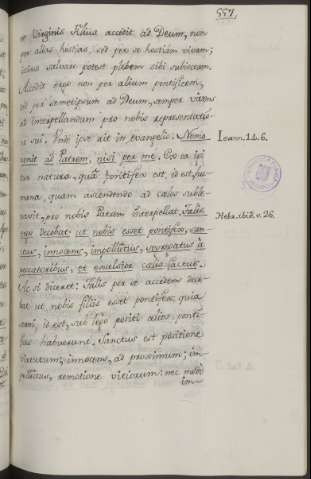 557.
et Virginis Filius accedit ad Deum, non
per alias hostias, sed per se hostiam vivam;
salvare potest plebem sibi subiectam.
Accedit ergo non per alium pontificem,
sed per semetipsum ad Deum, semper vivens
ad interpellandum pro nobis representatione
sui. Unde ipse ait in evangelio: Nemo Ioann. 14. 6.
venit ad Patrem, nisi per me. Ex ea igitur
natura, qua pontifex est, id est, humana,
quam ascendendo ad caelos sublevavit,
pro nobis Patrem interpellat. Talis Hebr. ibid. v. 26.
enim decebat ut nobis esset pontifex, sanctus,
innocens, impollutus, segregatus a
peccatoribus, et excelsior caelis factus.
Ac si diceret: Talis per se accedens decebat
ut nobis filiis esset pontifex, quia
id est, sub lege positi alios pontifices
habuerunt. Sanctus est positione
virtutum; innocens, ad proximum; impollutus,
remotione vitiorum: nec
im-